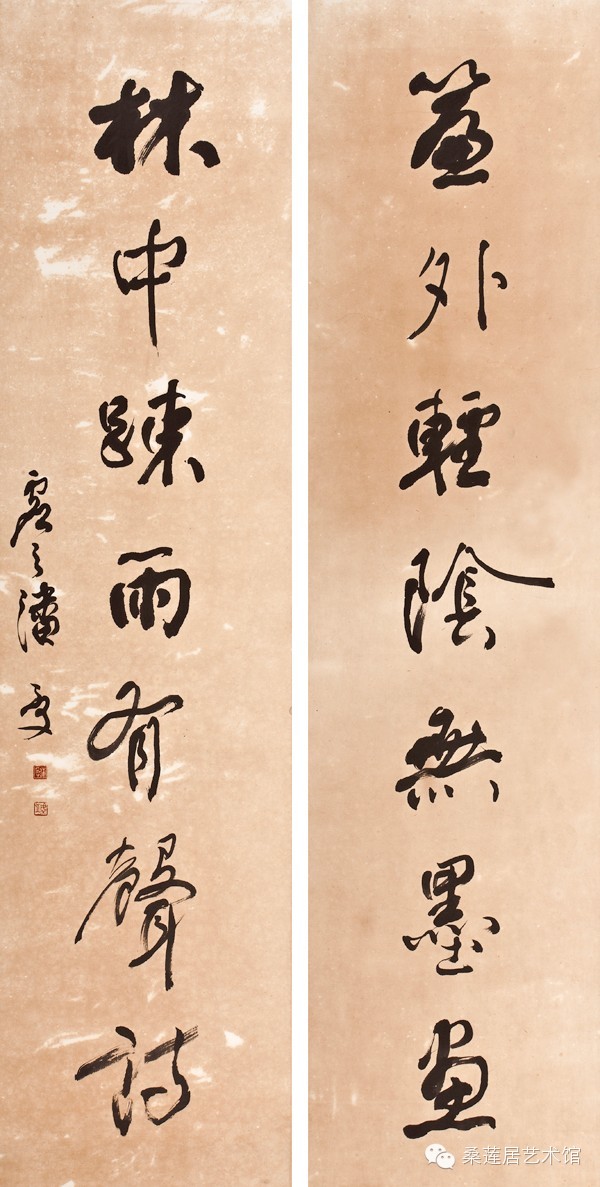 簾外輕陰無墨畫
林中踈雨有聲詩
虛之潘受
桑莲居艺术馆